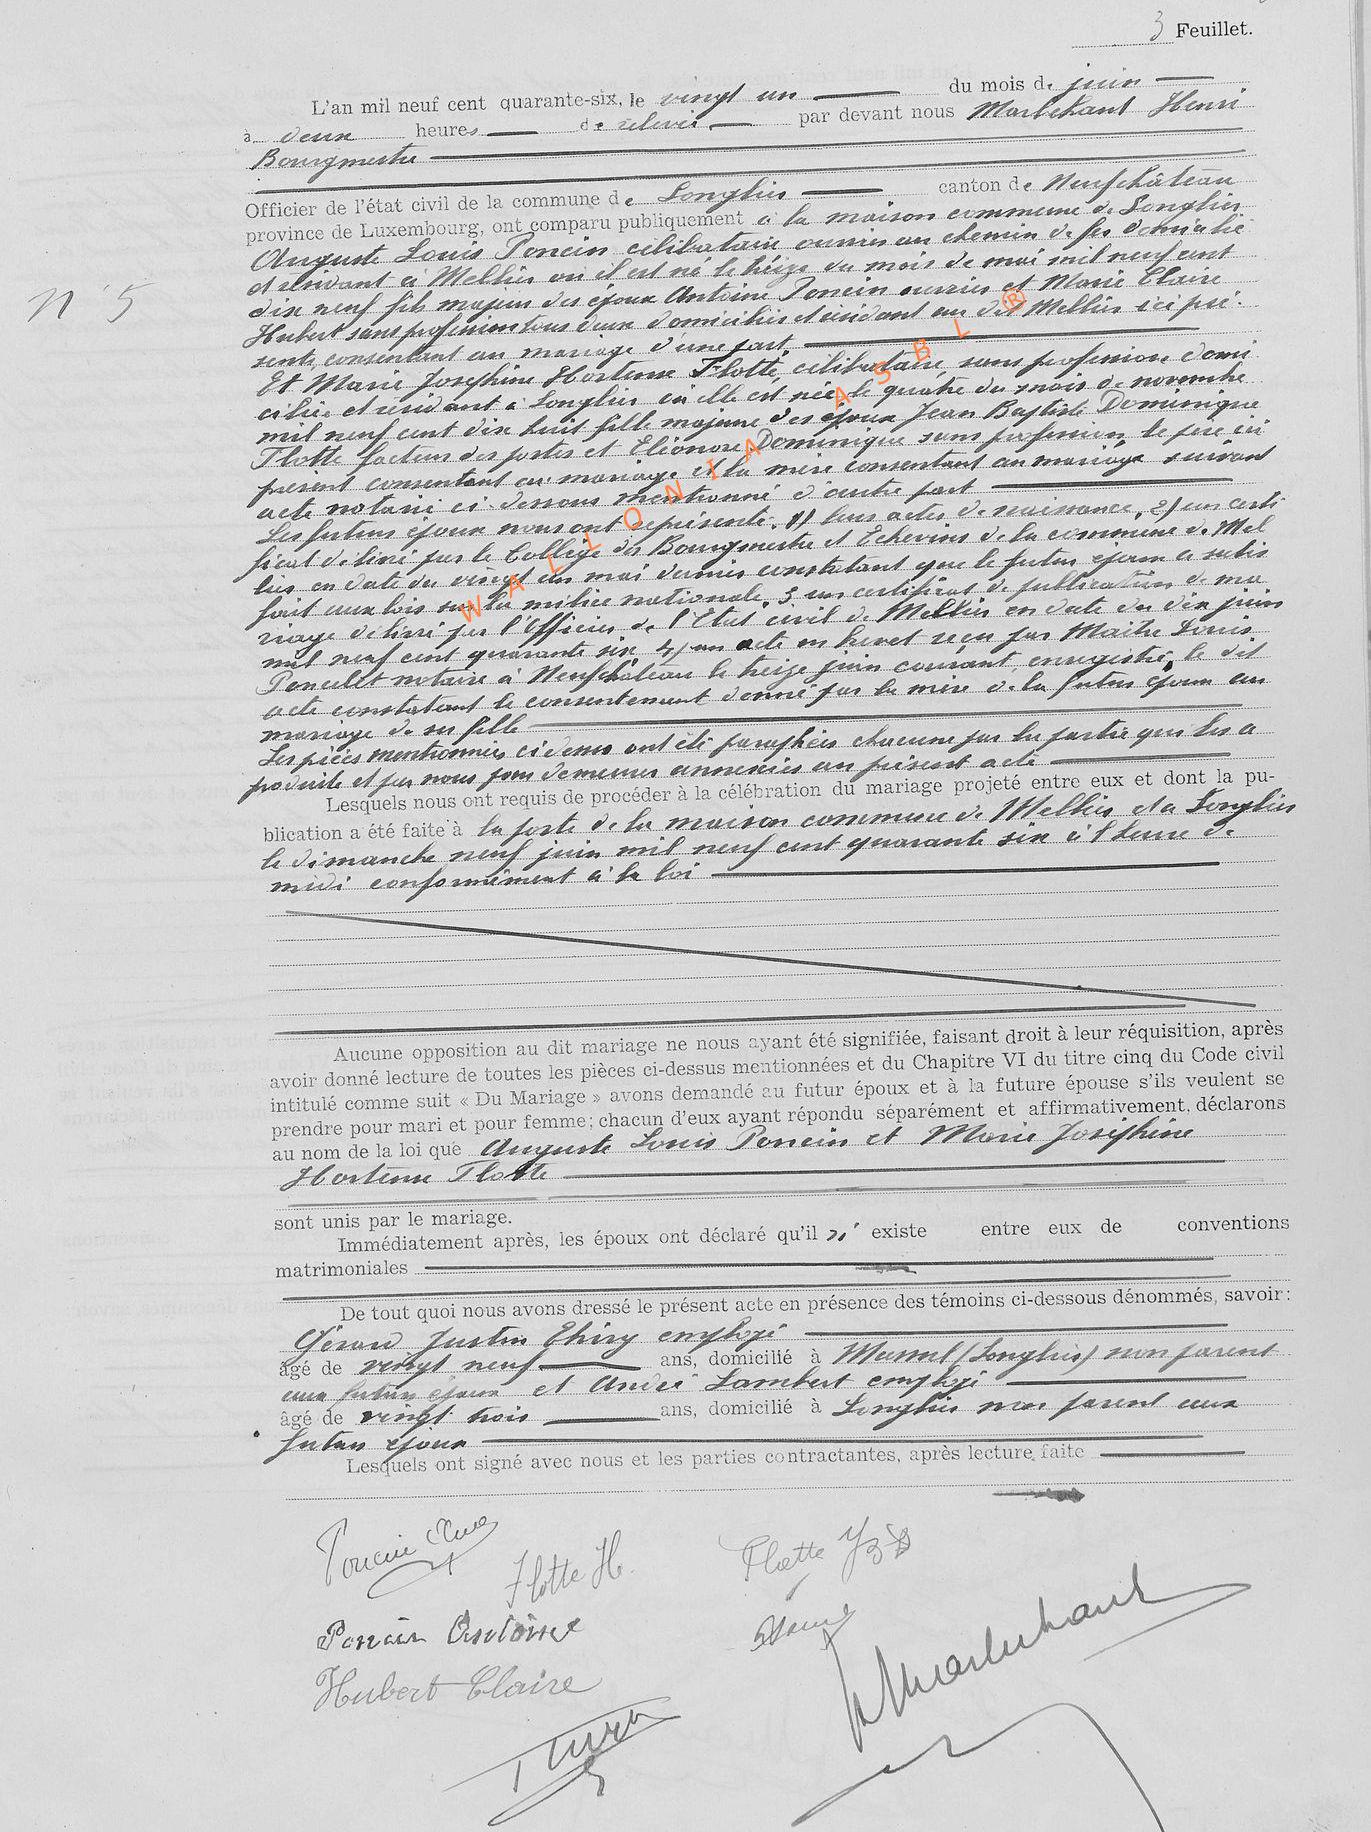 3 Feuillet.
L'an mil neuf cent quarante-six, le vingt un du mois de juin
à deux heures de relevée par devant nous Marlehant Henri
Bourgmestre
Officier de l'état civil de la commune de Longlier canton de Neufchâteau
province de Luxembourg, ont comparu publiquement à la maison commune de Longlier
Auguste Louis Poncin célibataire ouvrier au chemin de fer domicilié
et résidant à Mellier où il est né le treize du mois de mai mil neuf cent
dix neuf fils majeur des époux Antoine Poncin ouvrier et Marie Claire
Hubert sans profession tous deux domiciliés et résidant au dit Mellier ici pré-
sents, consentant au mariage d'une part.
Et Marie Joséphine Hortense Flotte célibataire, sans profession domi
ciliée et résidant à Longlier où elle est née le quatre du mois de novembre
mil neuf cent dix huit fille majeure des époux Jean Baptiste Dominique
Flotte facteur des postes et Eléonore Dominique sans profession, le père ici
présent consentant au mariage et la mère consentant au mariage suivant
acte notarié ci-dessous mentionné d'autre part
Les futurs époux nous ont représenté. 1) leurs actes de naissance, 2) un certi
ficat délivré par le Collège des Bourgmestre et Echevins de la commune de Mel
lier en date du vingt un mai dernier constatant que le futur époux a satis
fait aux lois sur la milice nationale, 3 un certificat de publication de ma
riage délivré par l'Officier de l'Etat civil de Mellier en date du dix juin
mil neuf cent quarante six, 4) un acte en brevet reçu par Maître Louis
Poncelet notaire à Neufchâteau le treize juin courant, enregistré, le dit
acte constatant le consentement donné par la mère de la future épouse au
mariage de sa fille
Les pièces mentionnées ci dessus ont été paraphées chacune par la partie qui les a
produite et par nous pour demeurer annexées au présent acte
Lesquels nous ont requis de procéder à la célébration du mariage projeté entre eux et dont la pu-
blication a été faite à la porte de la maison commune de Mellier et à Longlier
le dimanche neuf juin mil neuf cent quarante six à l'heure de
midi conformément à la loi
Aucune opposition au dit mariage ne nous ayant été signifiée, faisant droit à leur réquisition, après
avoir donné lecture de toutes les pièces ci-dessus mentionnées et du Chapitre VI du titre cinq du Code civil
intitulé comme suit « Du Mariage » avons demandé au futur époux et à la future épouse s'ils veulent se
prendre pour mari et pour femme; chacun d'eux ayant répondu séparément et affirmativement, déclarons
au nom de la loi que Auguste Louis Poncin et Marie Joséphine
Hortense Flotte
sont unis par le mariage.
Immédiatement après, les époux ont déclaré qu'il n' existe entre eux de conventions
matrimoniales
De tout quoi nous avons dressé le présent acte en présence des témoins ci-dessous dénommés, savoir:
Gérard Justin Thiry employé
âgé de vingt neuf ans, domicilié à Massul (Longlier) non parent
aux futurs époux et André Lambert employé
âgé de vingt trois ans, domicilié à Longlier non parent aux
futurs époux
Lesquels ont signé avec nous et les parties contractantes, après lecture faite
Poncin Aug
Flotte H.
Flotte J B
Poncin Antoine
Hubert Claire
Thiry
H Marlehant
N° 5
WALLONIA ASBL ®